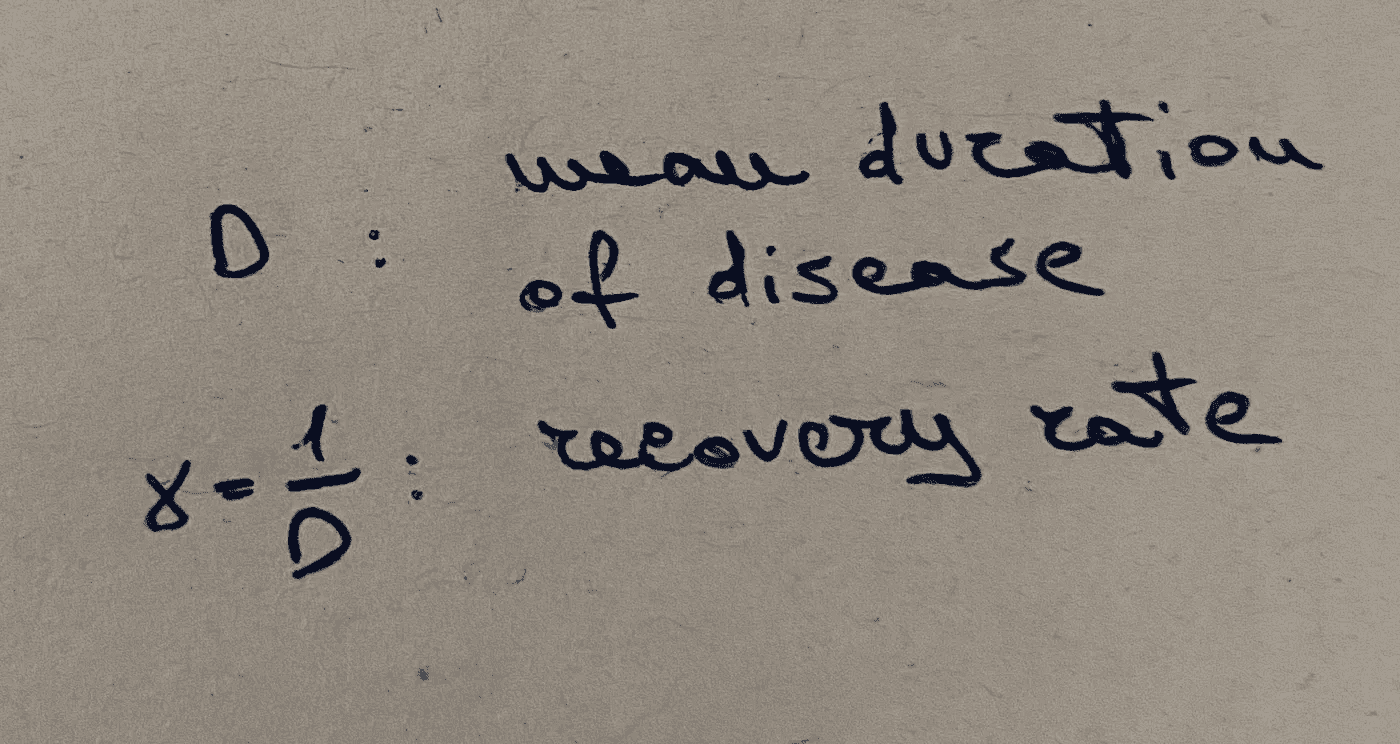 D : mean duration
of disease
γ = 1/D : recovery rate